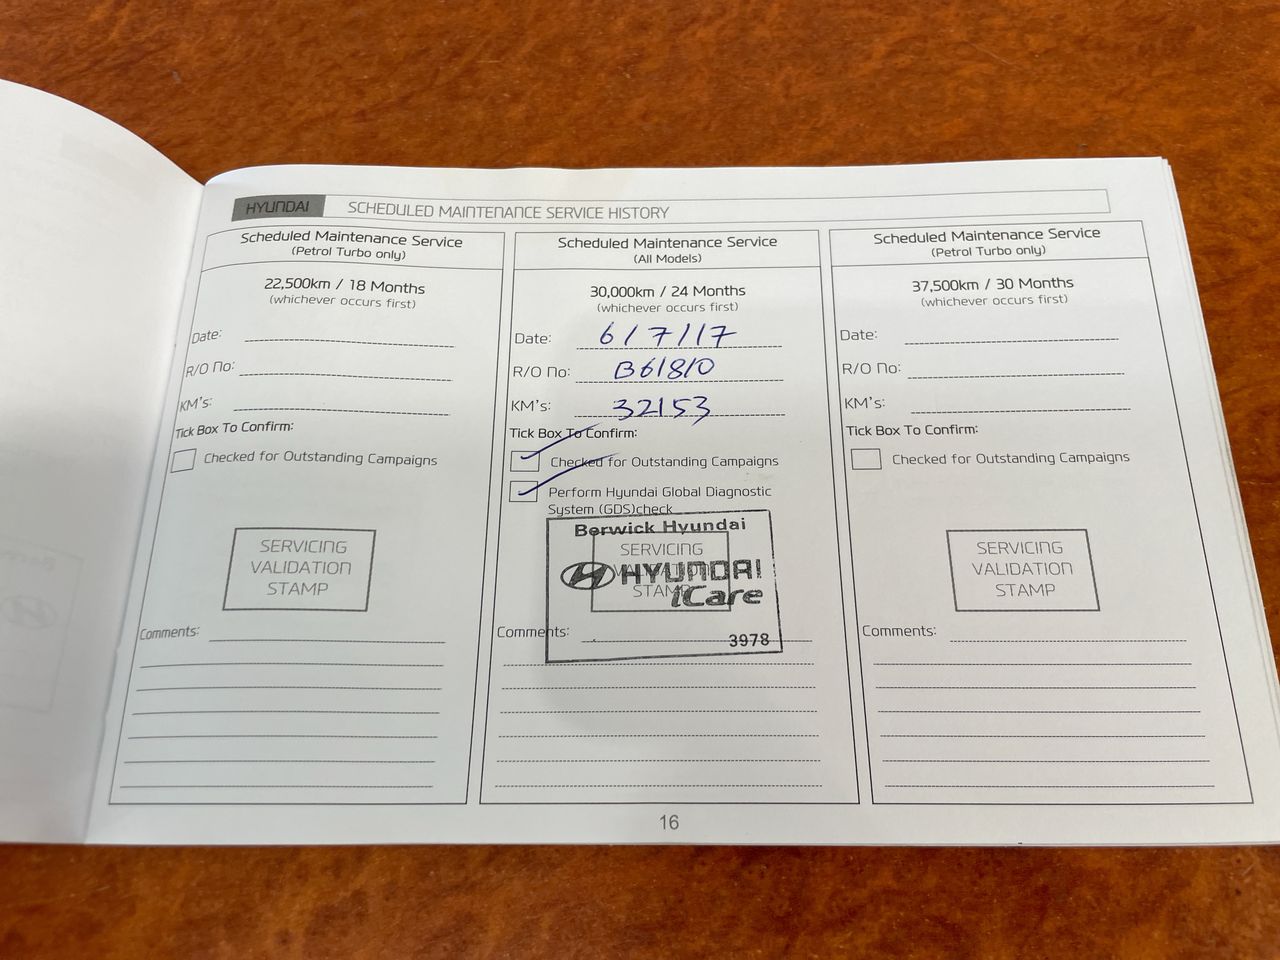 HYUNDAI SCHEDULED MAINTENANCE SERVICE HISTORY
Scheduled Maintenance Service
(Petrol Turbo only)
22,500km / 18 Months
(whichever occurs first)
Date:
R/O No:
KM's:
Tick Box To Confirm:
Checked for Outstanding Campaigns
SERVICING
VALIDATION
STAMP
Comments:
Scheduled Maintenance Service
(All Models)
30,000km / 24 Months
(whichever occurs first)
Date: 6/7/17
R/O No: B61810
KM's: 32153
Tick Box To Confirm:
Checked for Outstanding Campaigns
Perform Hyundai Global Diagnostic
System (GDS)check
Berwick Hyundai
SERVICING
HYUNDAI
STAMP
iCare
Comments:
3978
Scheduled Maintenance Service
(Petrol Turbo only)
37,500km / 30 Months
(whichever occurs first)
Date:
R/O No:
KM's:
Tick Box To Confirm:
Checked for Outstanding Campaigns
SERVICING
VALIDATION
STAMP
Comments:
16